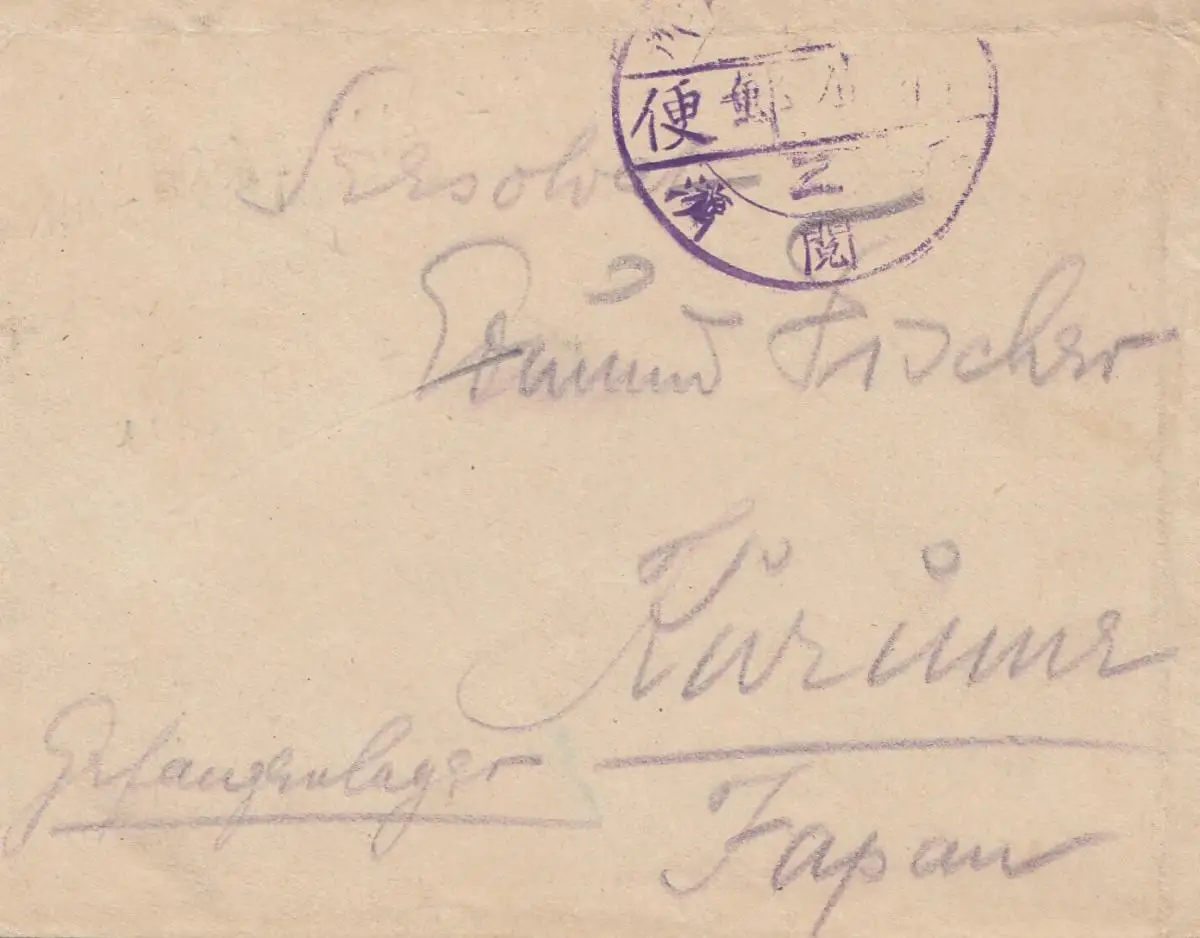 便郵
三
閲
Seesoldat
Edmund Fischer
Kurume
Gefangenenlager
Japan